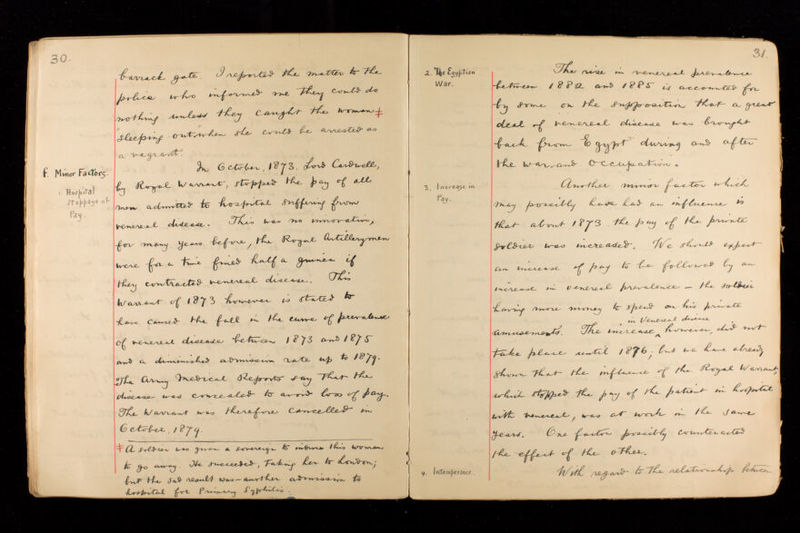 30.
barrack gate. I reported the matter to the
police who informed me they could do
nothing unless they caught the woman ‡
sleeping out when she could be arrested as
a vagrant.
F. Minor Factors.
1. Hospital
Stoppage of
Pay.
In October, 1873, Lord Cardwell,
by Royal Warrant, stopped the pay of all
men admitted to hospital suffering from
venereal disease. This was no innovation,
for many years before, the Royal Artillerymen
were for a time fined half a guinea if
they contracted venereal disease. This
Warrant of 1873 however is stated to
have caused the fall in the curve of prevalence
of venereal disease between 1873 and 1875
and a diminished admission rate up to 1879.
The Army Medical Reports say that the
disease was concealed to avoid loss of pay.
The Warrant was therefore cancelled in
October, 1879.
‡ A soldier was given a sovereign to induce this woman
to go away. He succeeded, taking her to London;
but the sad result was another admission to
hospital for Primary Syphilis.
31.
2. The Egyptian
War.
The rise in venereal prevalence
between 1882 and 1885 is accounted for
by some on the supposition that a great
deal of venereal disease was brought
back from Egypt during and after
the war and occupation.
3. Increase in
Pay.
Another minor factor which
may possibly have had an influence is
that about 1873 the pay of the private
soldier was increased. We should expect
an increase of pay to be followed by an
increase in venereal prevalence – the soldier
having more money to spend on his private
amusements. The increase in Venereal disease however, did not
take place until 1876; but we have already
shown that the influence of the Royal Warrant,
which stopped the pay of the patient in hospital
with venereal, was at work in the same
years. One factor possibly counteracted
the effect of the other.
4. Intemperance.
With regard to the relationship between